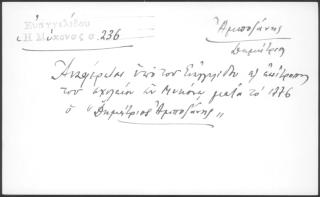 Εὐαγγελίδου
"Ἡ Μύκονος σ. 236
Ἀμποζάνης
Δημήτριος
Ἀναφέρεται ὑπὸ τοῦ Εὐαγγελίδου ὡς ἐπίτροπος
τοῦ σχολείου ἐν Μυκόνῳ μετὰ τὸ 1776
ὁ "Δημήτριος Ἀμποζάνης"